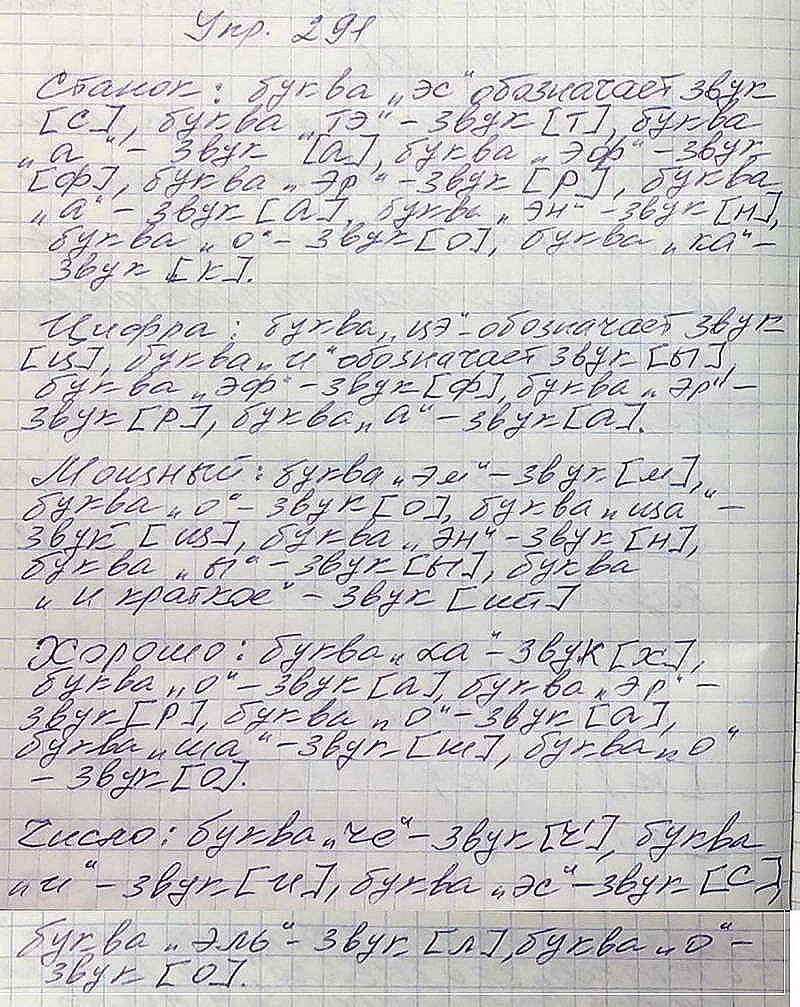 Упр. 291
Станок: буква „эс“ обозначает звук
[с], буква „тэ“ – звук [т], буква
„а“ – звук [а], буква „эф“ – звук
[ф], буква „эр“ – звук [р], буква
„а“ – звук [а], буква „эн“ – звук [н],
буква „о“ – звук [о], буква „ка“ –
звук [к].
Цифра: буква „цэ“ – обозначает звук
[ц], буква „и“ обозначает звук [ы],
буква „эф“ – звук [ф], буква „эр“ –
звук [р], буква „а“ – звук [а].
Мощный: буква „эм“ – звук [м],
буква „о“ – звук [о], буква „ща“ –
звук [щ], буква „эн“ – звук [н],
буква „ы“ – звук [ы], буква
„и краткое“ – звук [ий]
Хорошо: буква „ха“ – звук [х],
буква „о“ – звук [а], буква „эр“ –
звук [р], буква „о“ – звук [а],
буква „ша“ – звук [ш], буква „о“
– звук [о].
Число: буква „че“ – звук [ч'], буква
„и“ – звук [и], буква „эс“ – звук [с],
буква „эль“ – звук [л], буква „о“ –
звук [о].